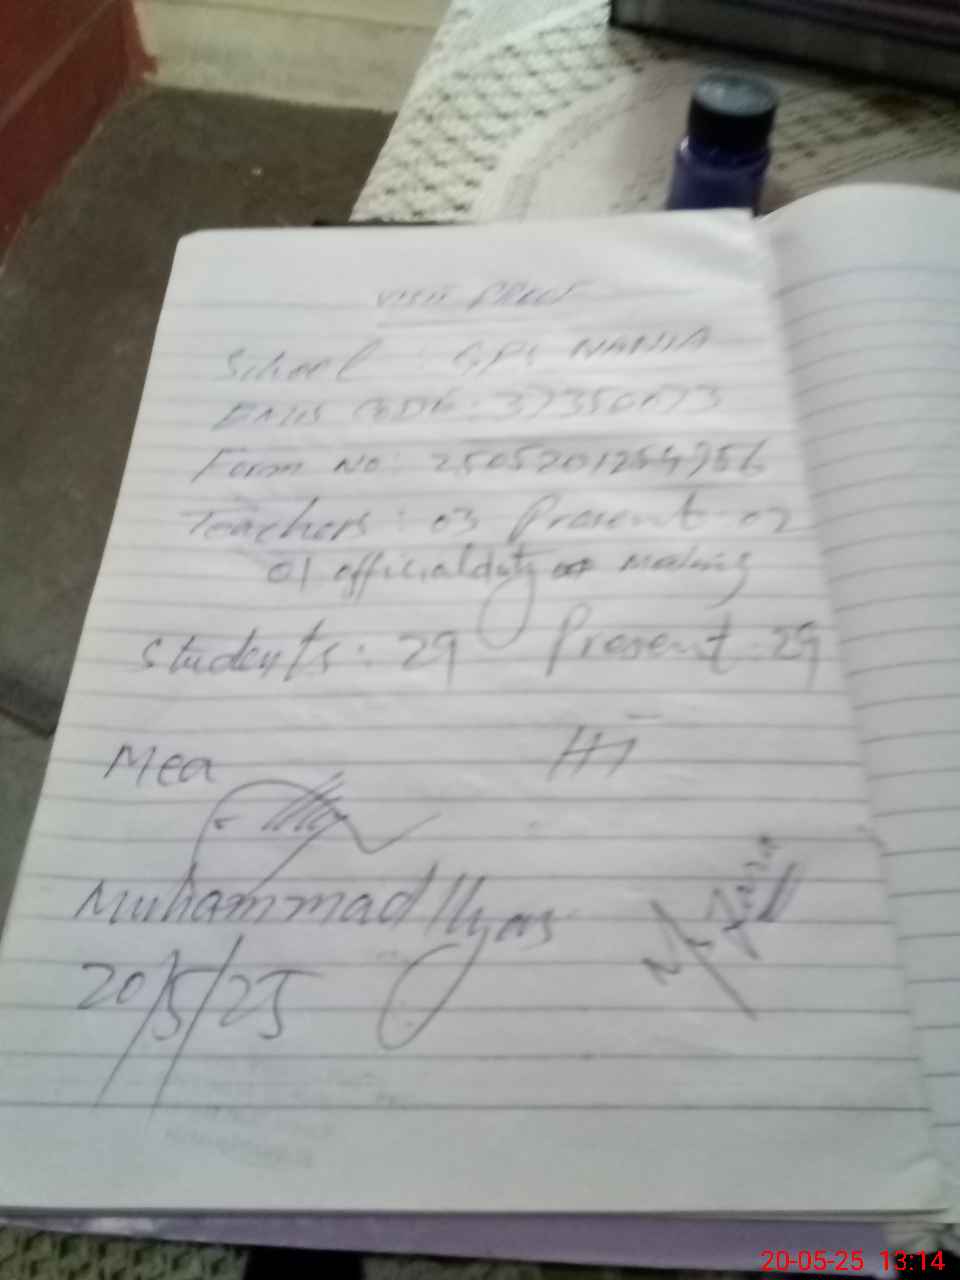 VISIT PROOF
School : GPS NANIA
EMIS CODE : 37350073
Form No: 2505201254956
Teachers : 03 Present 02
01 official duty meeting
Students : 29 Present : 29
Mea
HT
Muhammad Ilyas
20/5/25
20-05-25 13:14